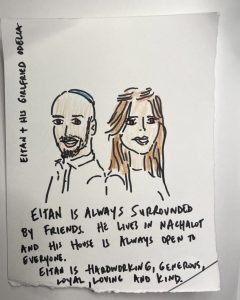 EITAN + HIS GIRLFRIED ODELIA
EITAN IS ALWAYS SURROUNDED
BY FRIENDS. HE LIVES IN NACHALOT
AND HIS HOUSE IS ALWAYS OPEN TO
EVERYONE.
EITAN IS HARDWORKING, GENEROUS,
LOYAL, LOVING AND KIND.